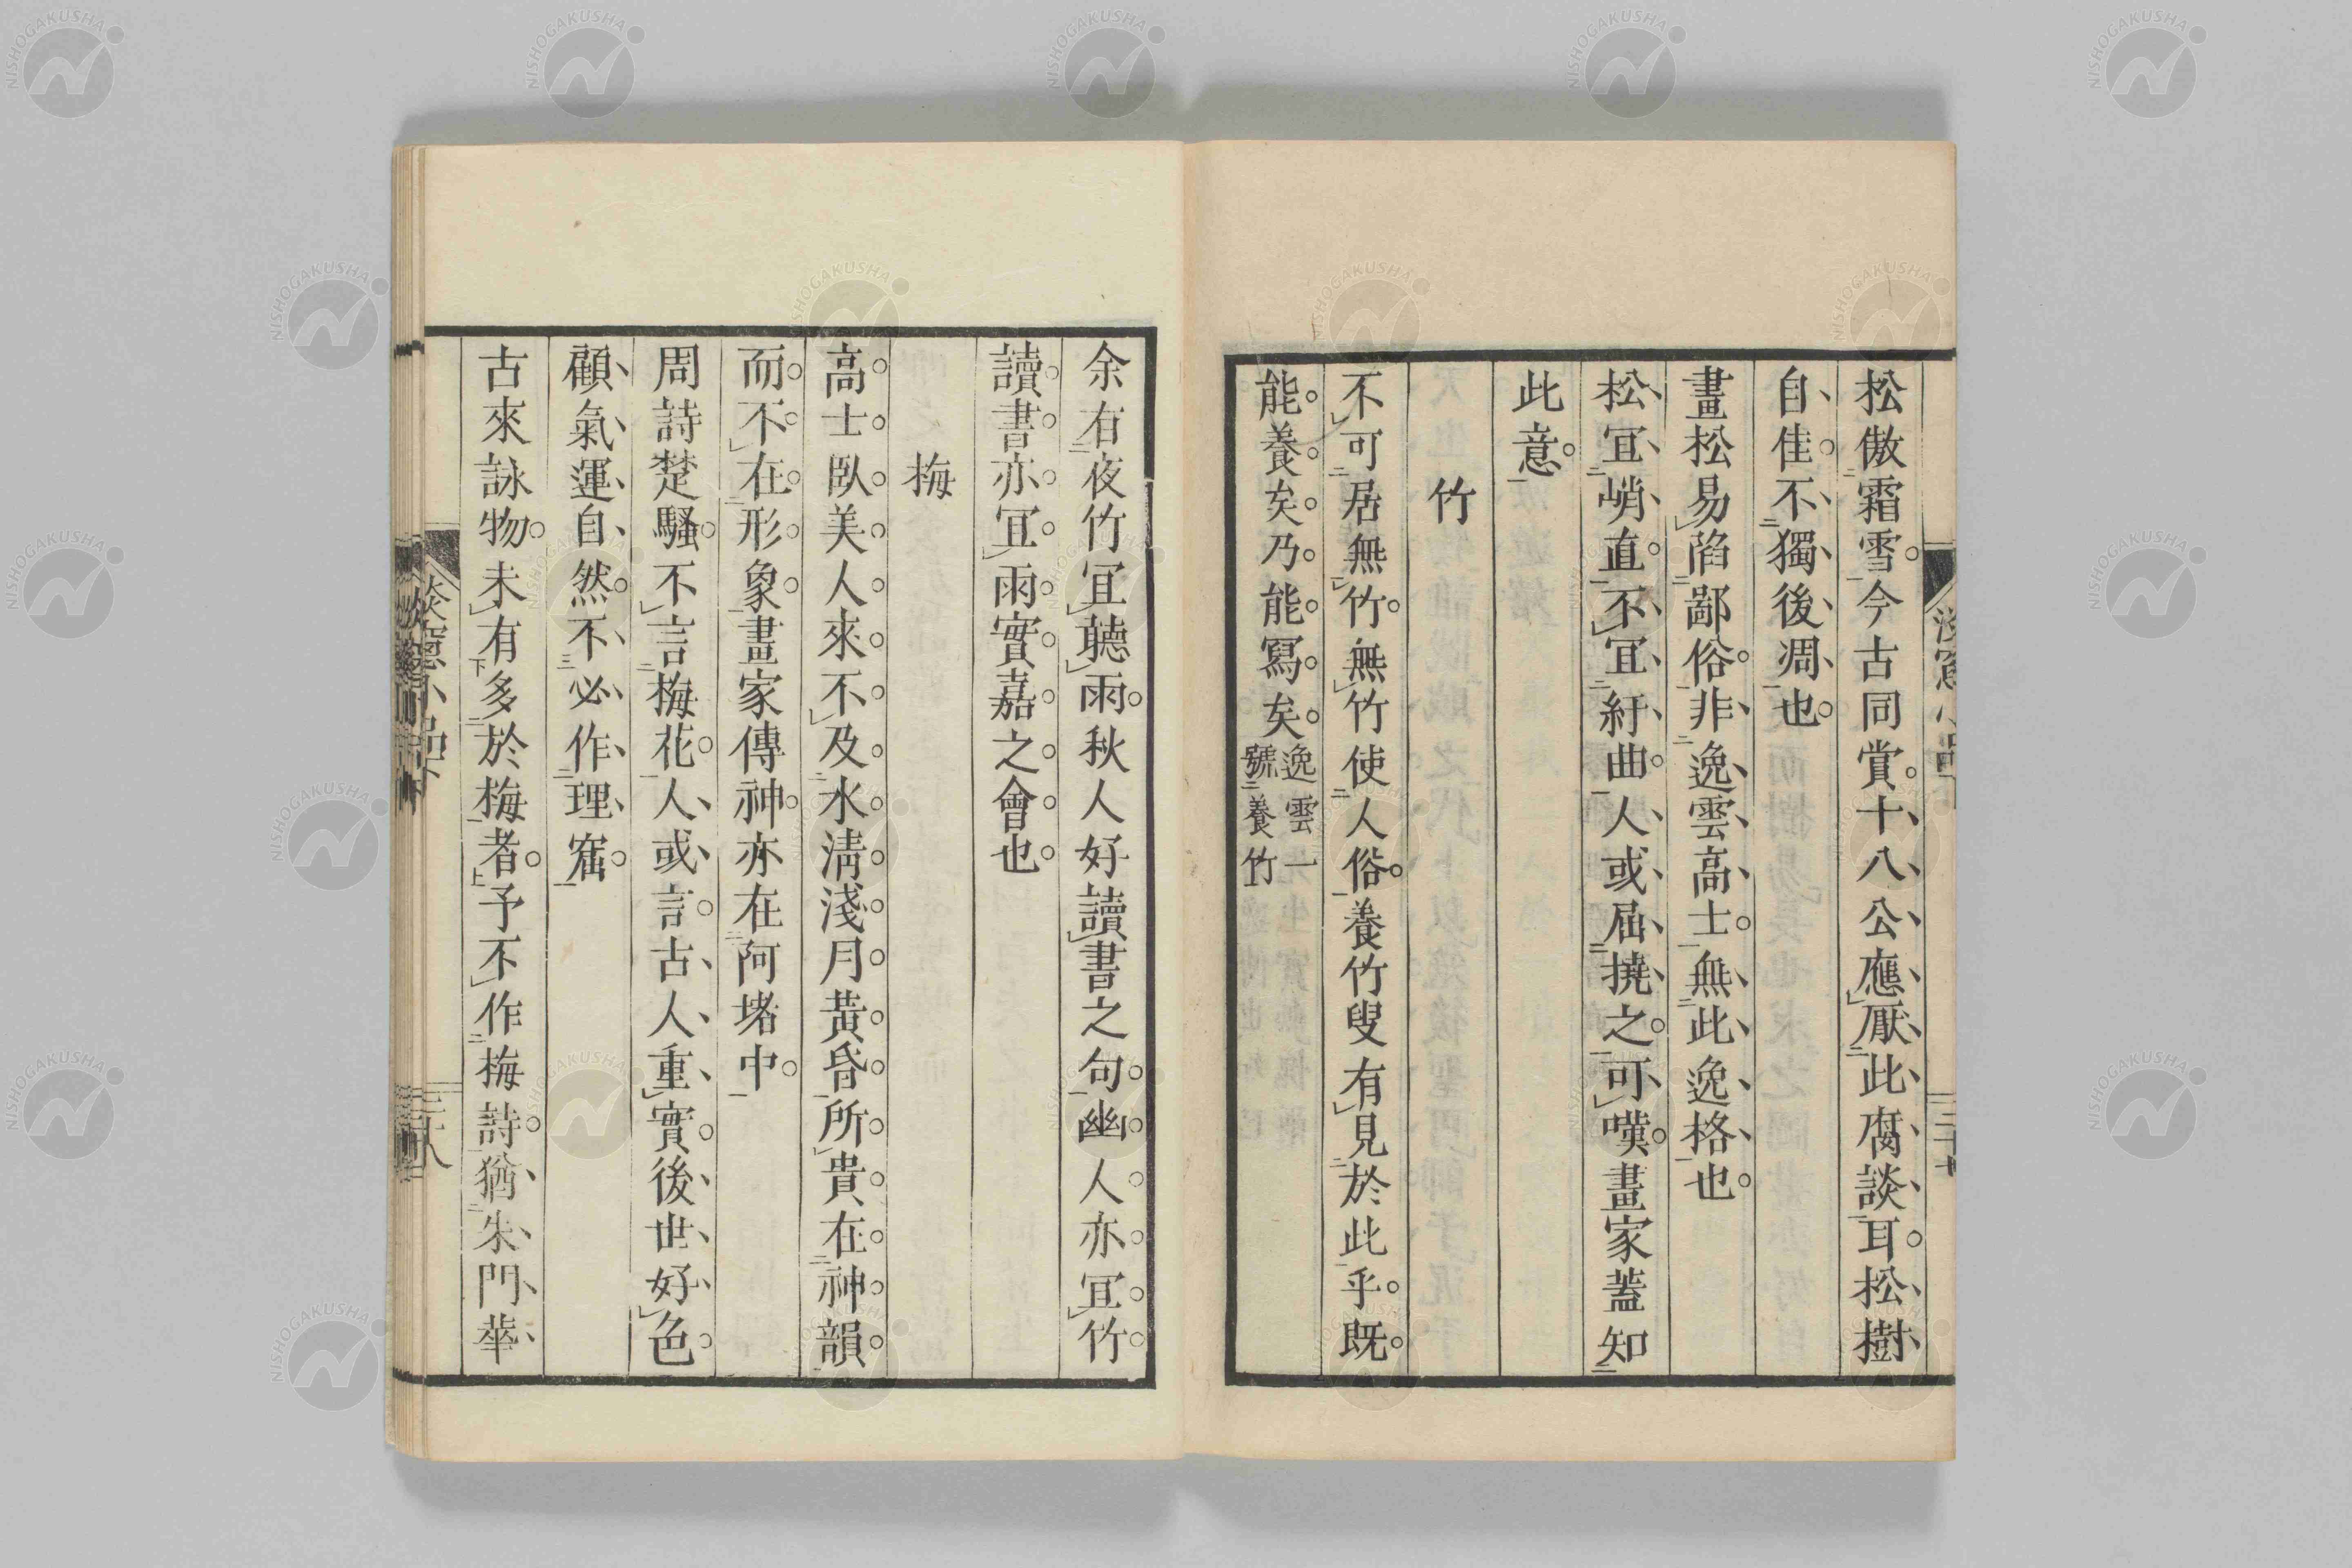 松傲霜雪。今古同賞。十八公應厭此腐談耳。松樹
自佳。不獨後凋也。
畫松易陷鄙俗。非逸雲高士。無此逸格也。
松宜峭直。不宜紆曲。人或屈撓之。可嘆。畫家蓋知
此意。
竹
不可居無竹。無竹使人俗。養竹叟有見於此乎。既
能養矣。乃能寫矣。逸雲一號養竹
余右夜竹宜聽雨。秋人好讀書之句。幽人亦宜竹
讀書。亦宜雨。實嘉之會也。
梅
高士臥。美人來。不及水淸淺月黃昏。所貴在神韻。
而不在形象。畫家傳神。亦在阿堵中。
周詩楚騷。不言梅花。人或言。古人重實。後世好色。
顧氣運自然。不必作理窟。
古來詠物。未有多於梅者。予不作梅詩。猶朱門華
三十八
NISHOGAKUSHA